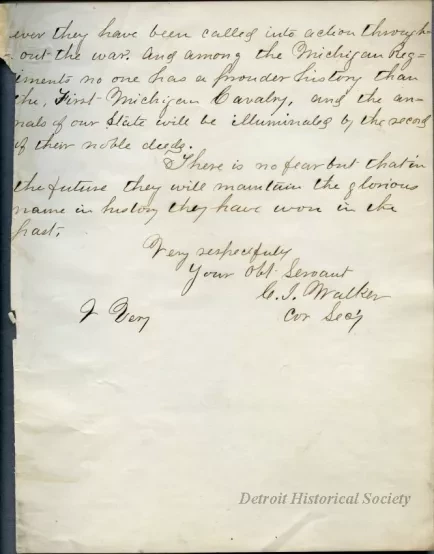 ever they have been called into action through-
out the war. And among the Michigan Reg-
iments no one has a prouder history than
the, First Michigan Cavalry, and the an-
nals of our State will be illuminated by the record
of their noble deeds.
There is no fear but that in
the future they will maintain the glorious
name in history they have won in the
past.
Very respectfully
Your Obt Servant
C. I. Walker
Cor Sec'y
Very
Detroit Historical Society